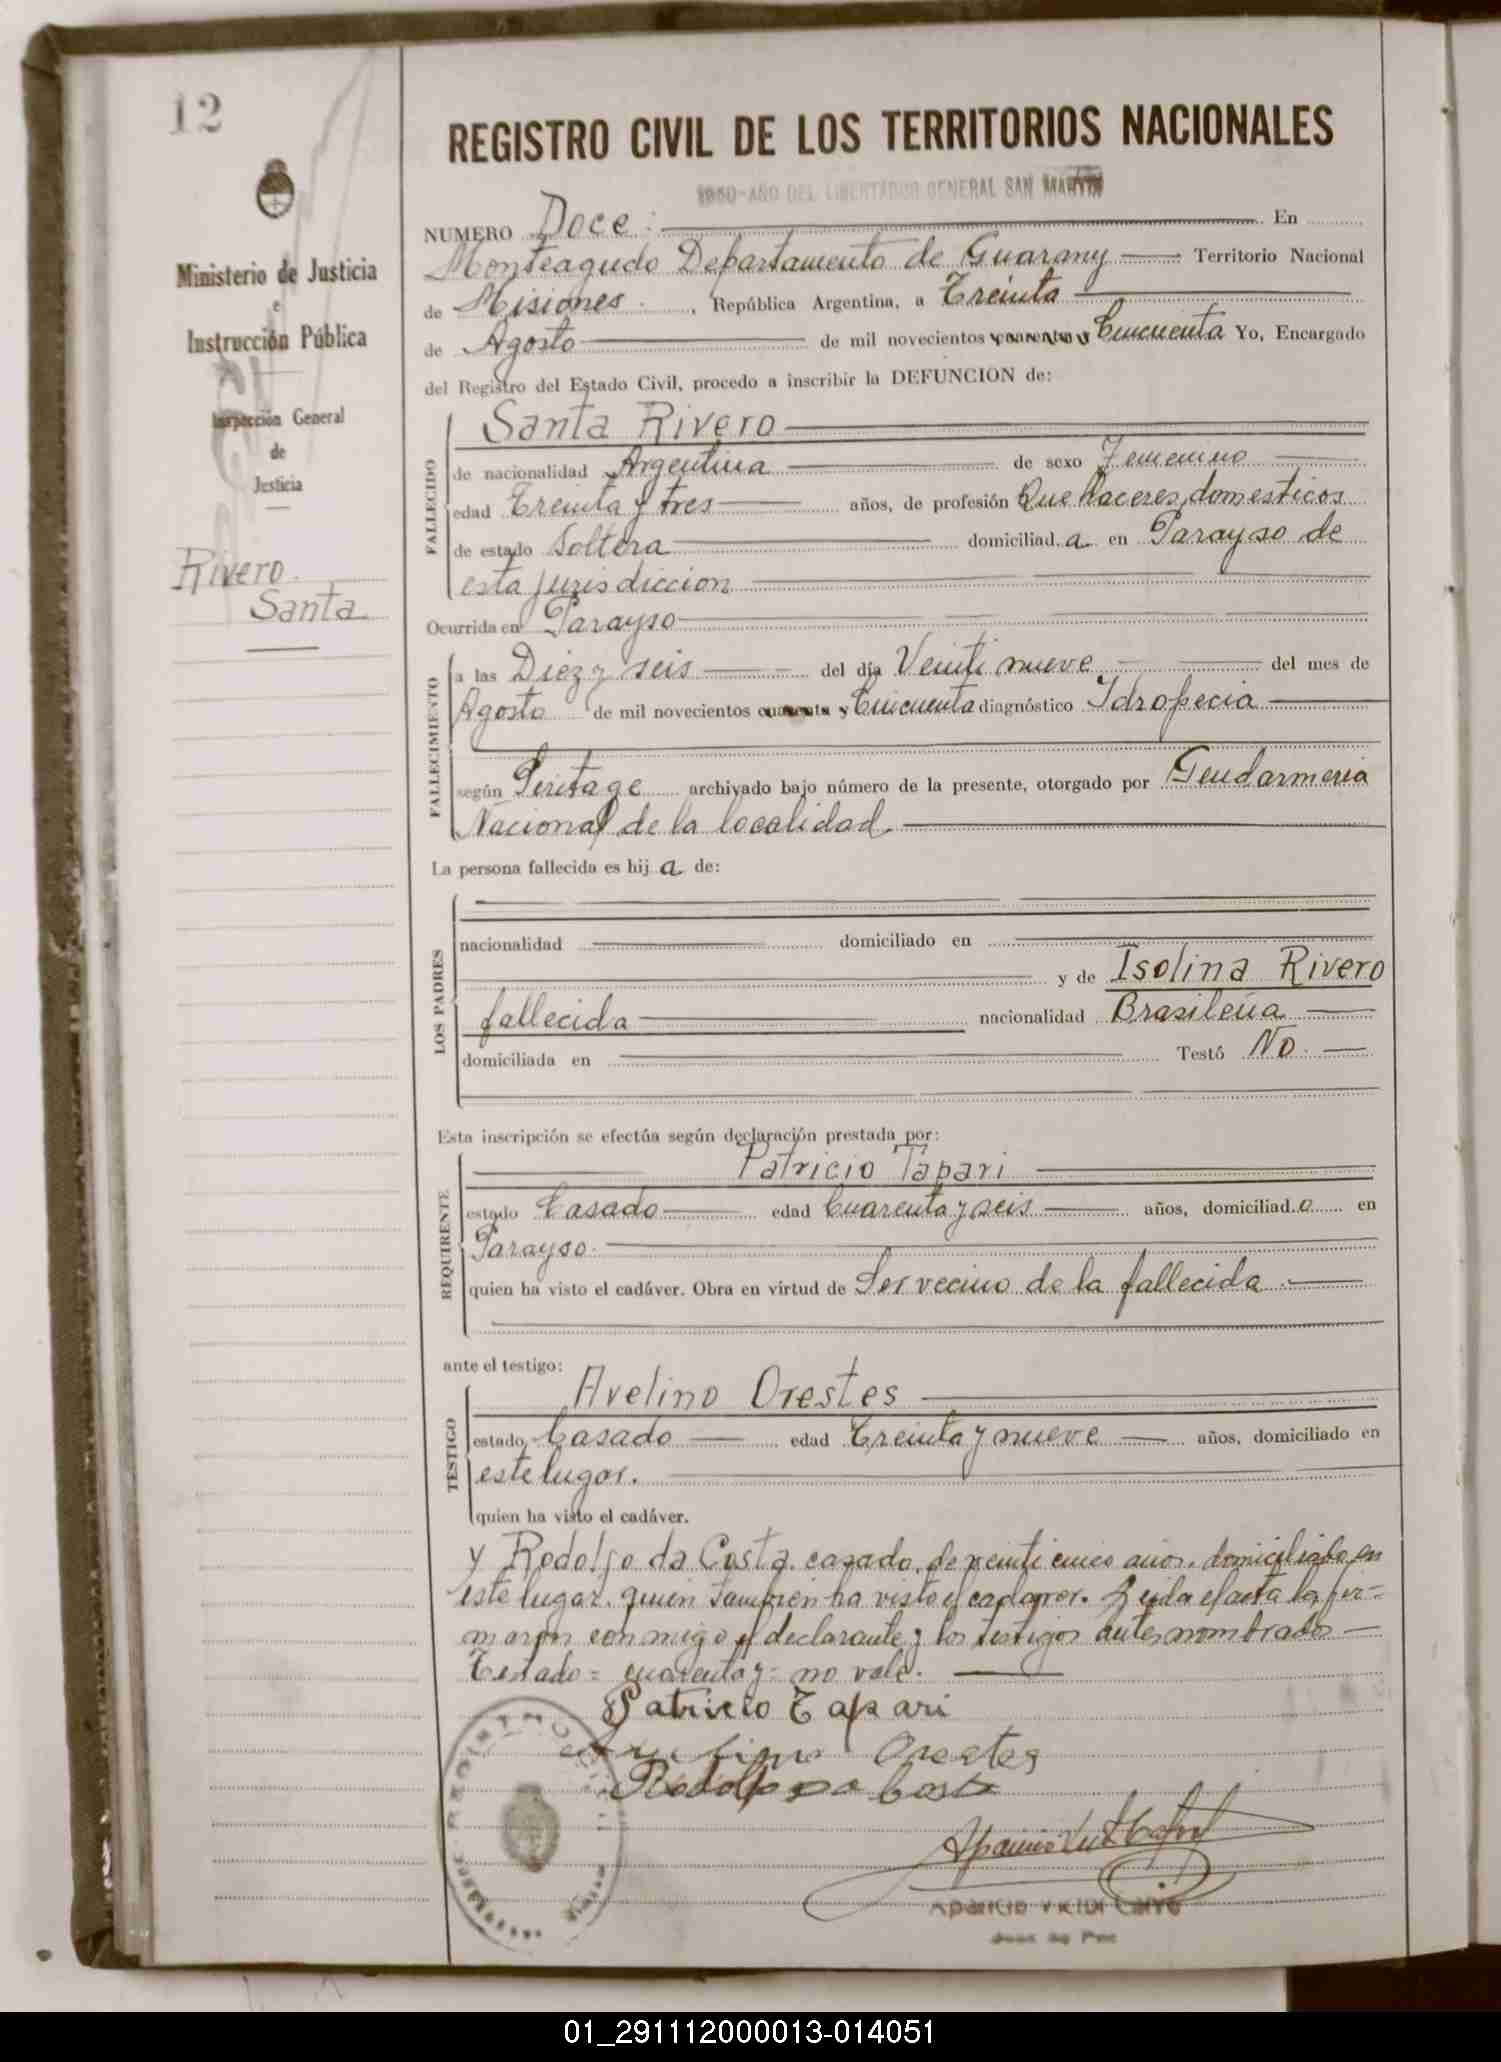 12
Ministerio de Justicia
e
Instrucción Pública
Inspección General
de
Justicia
Rivero
Santa
REGISTRO CIVIL DE LOS TERRITORIOS NACIONALES
1950-AÑO DEL LIBERTADOR GENERAL SAN MARTIN
NUMERO Doce: En
Monteagudo Departamento de Guarany Territorio Nacional
de Misiones, República Argentina, a Treinta
de Agosto de mil novecientos cuarenta y Cincuenta Yo, Encargado
del Registro del Estado Civil, procedo a inscribir la DEFUNCION de:
FALLECIDO
Santa Rivero
de nacionalidad Argentina de sexo Femenino
edad Treinta y tres años, de profesión Que haceres domesticos
de estado Soltera domiciliad a en Parayso de
esta jurisdiccion
Ocurrida en Parayso
FALLECIMIENTO
a las Diez y seis del día Veinti nueve del mes de
Agosto de mil novecientos cuarenta y Cincuenta diagnóstico Idropecia
según Peritage archivado bajo número de la presente, otorgado por Gendarmeria
Nacional de la localidad.
La persona fallecida es hij a de:
LOS PADRES
nacionalidad domiciliado en
y de Isolina Rivero
fallecida nacionalidad Brasileña
domiciliada en Testó No.
Esta inscripción se efectúa según declaración prestada por:
REQUIRENTE
Patricio Tapari
estado Casado edad Cuarenta y seis años, domiciliad o en
Parayso.
quien ha visto el cadáver. Obra en virtud de Ser vecino de la fallecida.
ante el testigo:
TESTIGO
Avelino Orestes
estado Casado edad Treinta y nueve años, domiciliado en
este lugar.
quien ha visto el cadáver.
y Rodolfo da Costa, casado, de veinti cinco años, domiciliado en
este lugar, quien tambien ha visto el cadaver. Leida el acta la fir=
maron conmigo el declarante y los testigos antes nombrados
Testado = cuarenta y = no vale.
Patricio Tapari
Avelino Orestes
Rodolfo da Costa
Aparicio Victor Calvo
Juez de Paz
01_291112000013-014051